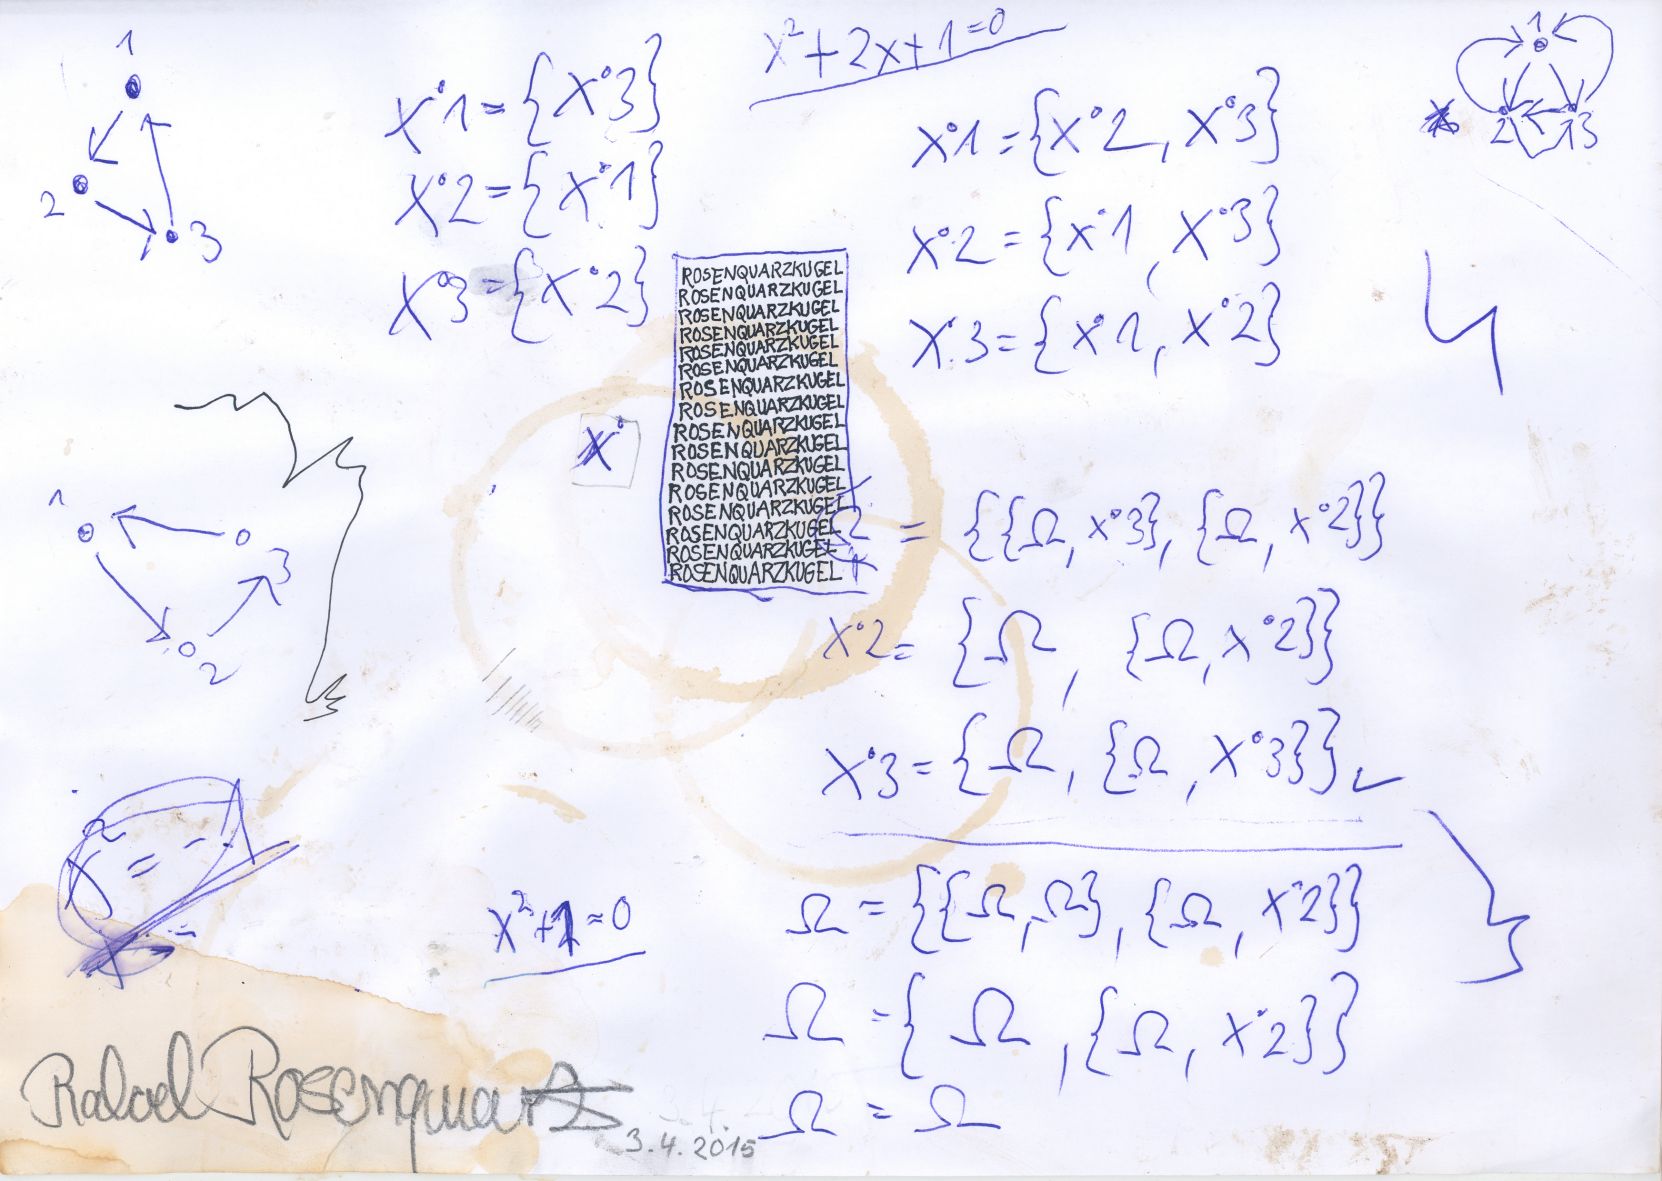 1
2
3
x°1 = {x°3}
x°2 = {x°1}
x°3 = {x°2}
x²+2x+1=0
x°1 = {x°2, x°3}
x°2 = {x°1, x°3}
x°3 = {x°1, x°2}
1
2
3
ROSENQUARZKUGEL
ROSENQUARZKUGEL
ROSENQUARZKUGEL
ROSENQUARZKUGEL
ROSENQUARZKUGEL
ROSENQUARZKUGEL
ROSENQUARZKUGEL
ROSENQUARZKUGEL
ROSENQUARZKUGEL
ROSENQUARZKUGEL
ROSENQUARZKUGEL
ROSENQUARZKUGEL
ROSENQUARZKUGEL
ROSENQUARZKUGEL
ROSENQUARZKUGEL
ROSENQUARZKUGEL
x°
1
3
2
Ω = {{Ω, x°3}, {Ω, x°2}}
x°2 = {Ω, {Ω, x°2}}
x°3 = {Ω, {Ω, x°3}}
x²+1=0
Ω = {{Ω, Ω}, {Ω, x°2}}
Ω = {Ω, {Ω, x°2}}
Ω = Ω
Rosenquartz
3.4.2015